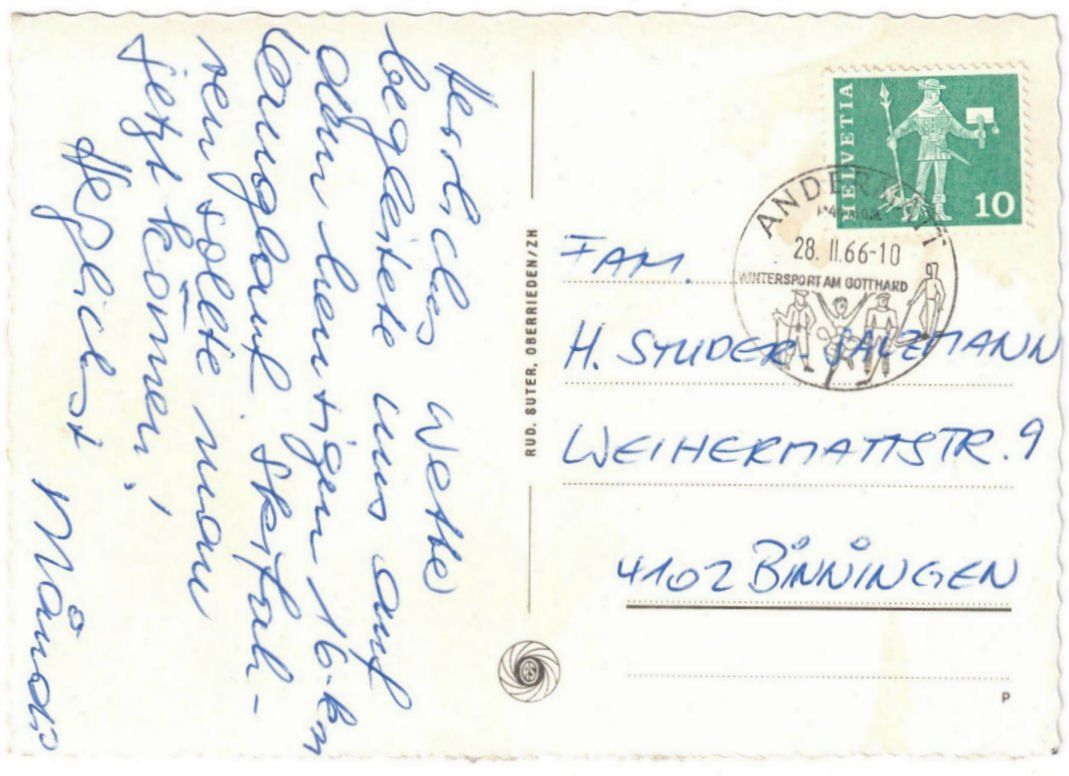 Herrliches Wetter
begleitete uns auf
dem heutigen 16-km
Langlauf. Skifah-
ren sollte man
jetzt können!
Herzlichst
RUD. SUTER, OBERRIEDEN/ZH
HELVETIA
10
ANDERMATT
28. II. 66-10
WINTERSPORT AM GOTTHARD
FAM.
H. STUDER SALZMANN
WEIHERMATTSTR. 9
4102 BINNINGEN
P